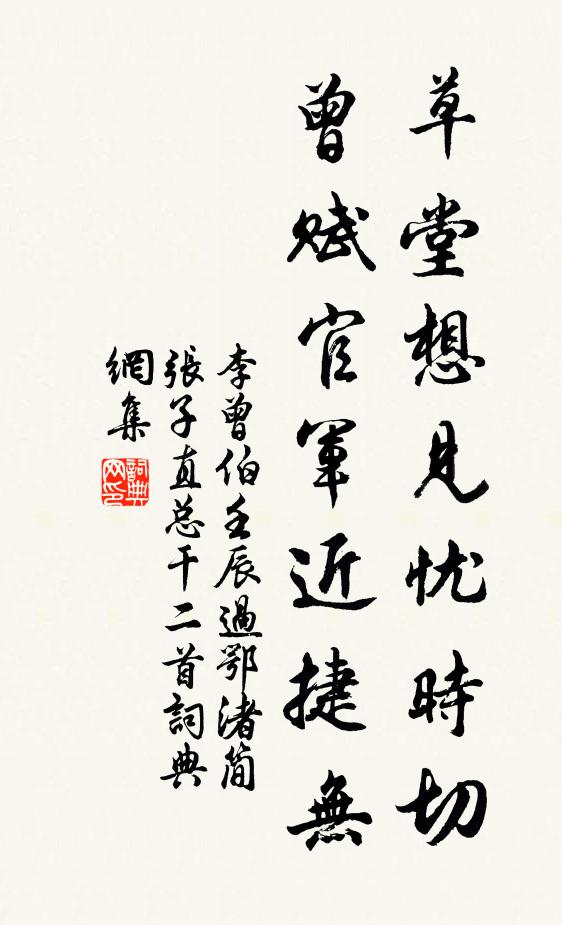 草堂想見忧時切
曾赋官軍近捷無
李曾伯壬辰過鄂渚简
張子直总干二首詞典
網集
詞典网印